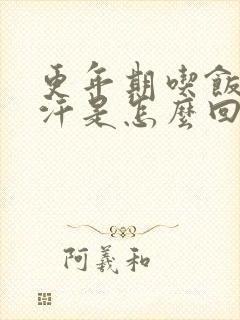 更年期喫飯
汗是怎麼回
阿羲和